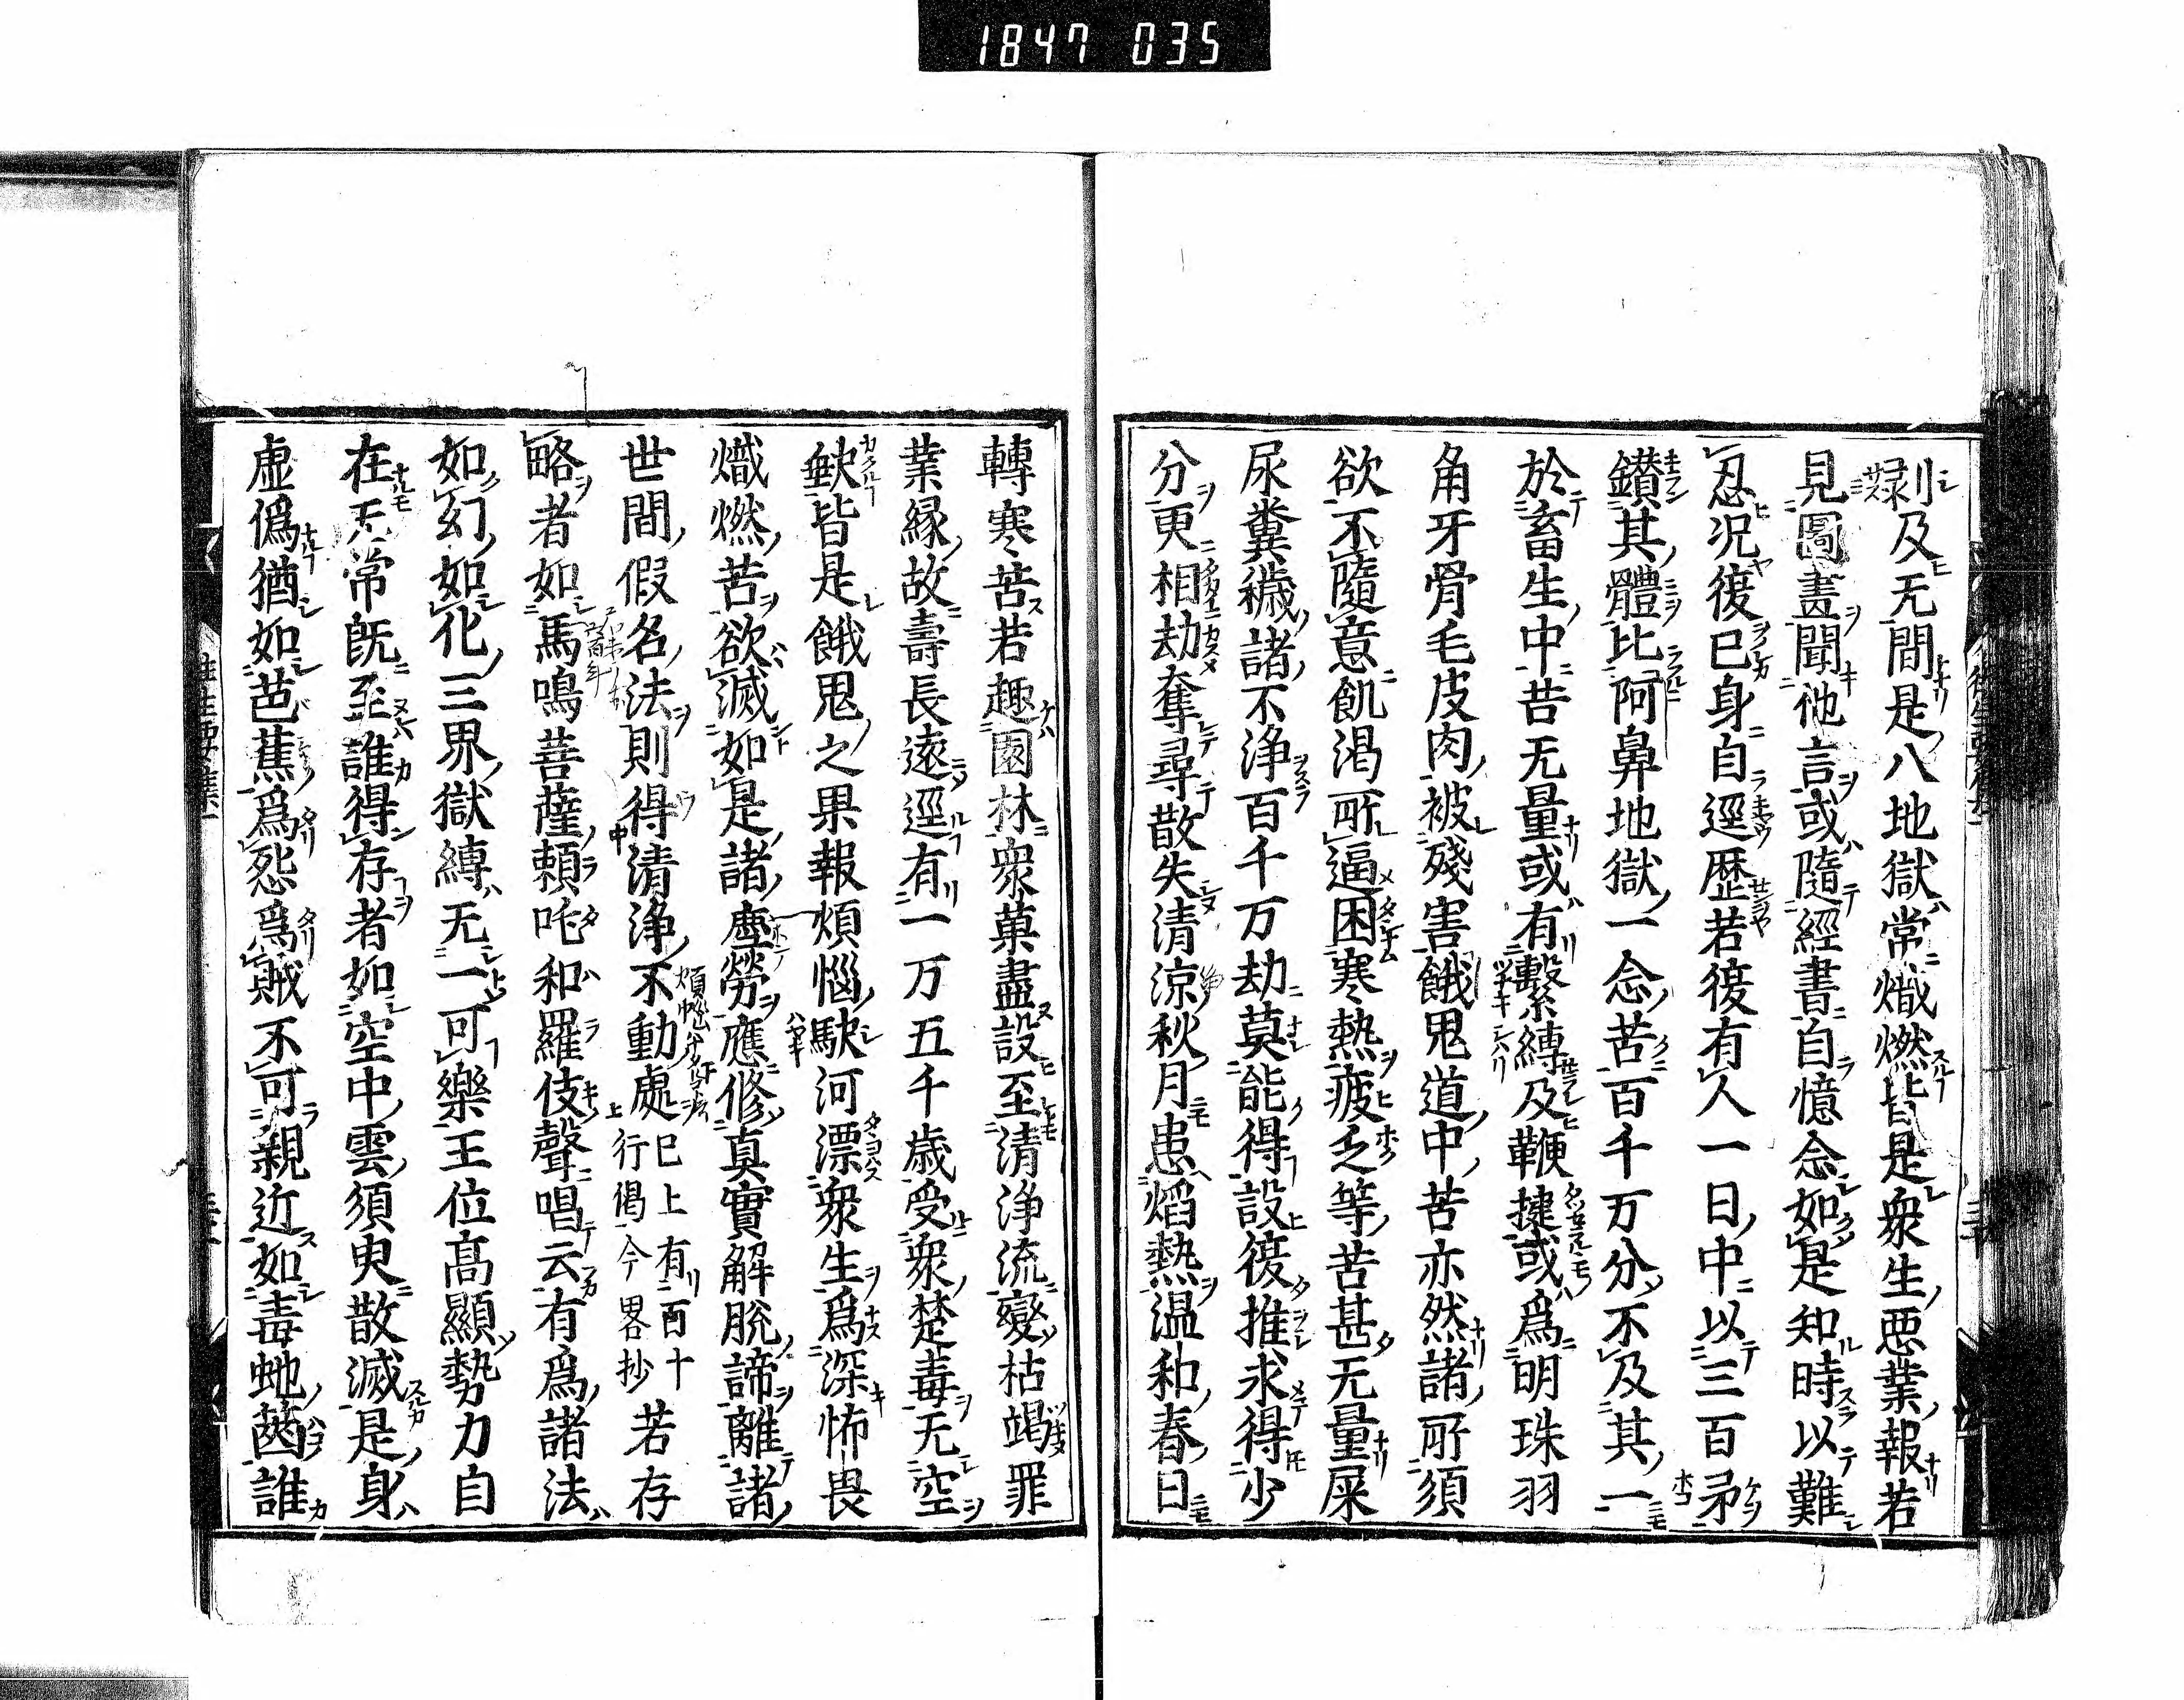 1847 035
剥及无間是八地獄常熾燃皆是衆生悪業報若
見圖畫聞他言或隨經書自憶念如是知時以難
忍況復已身自逕歴若復有人一日中以三百矛
鑚其體比阿鼻地獄一念苦百千万分不及其一
於畜生中苦无量或有繫縛及鞭撻或爲明珠羽
角牙骨毛皮肉被殘害餓鬼道中苦亦然諸所須
欲不隨意飢渇所逼困寒熱疲乏等苦甚无量屎
尿糞穢諸不浄百千万劫莫能得設復推求得少
分更相劫奪尋散失清涼秋月患焔熱温和春日
轉寒苦若趣園林衆菓盡設至清浄流變枯竭罪
業縁故壽長遠逕有一万五千歳受衆楚毒无空
缺皆是餓鬼之果報煩惱駃河漂衆生爲深怖畏
熾燃苦欲滅如是諸塵勞應修真實解脱諦離諸
世間假名法則得清浄不動處已上有百十行偈今畧抄若存
略者如馬鳴菩薩頼吒和羅伎聲唱云有爲諸法
如幻如化三界獄縛无一可樂王位高顯勢力自
在无常既至誰得存者如空中雲須臾散滅是身
虚僞猶如芭蕉爲怨爲賊不可親近如毒虵篋誰